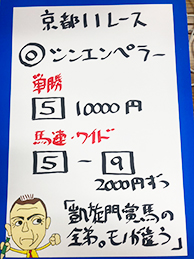 京都11レース
◎シンエンペラー
単勝
5 10000円
馬連・ワイド
5 - 9
2000円ずつ
「凱旋門賞馬の
全弟。モノが違う」